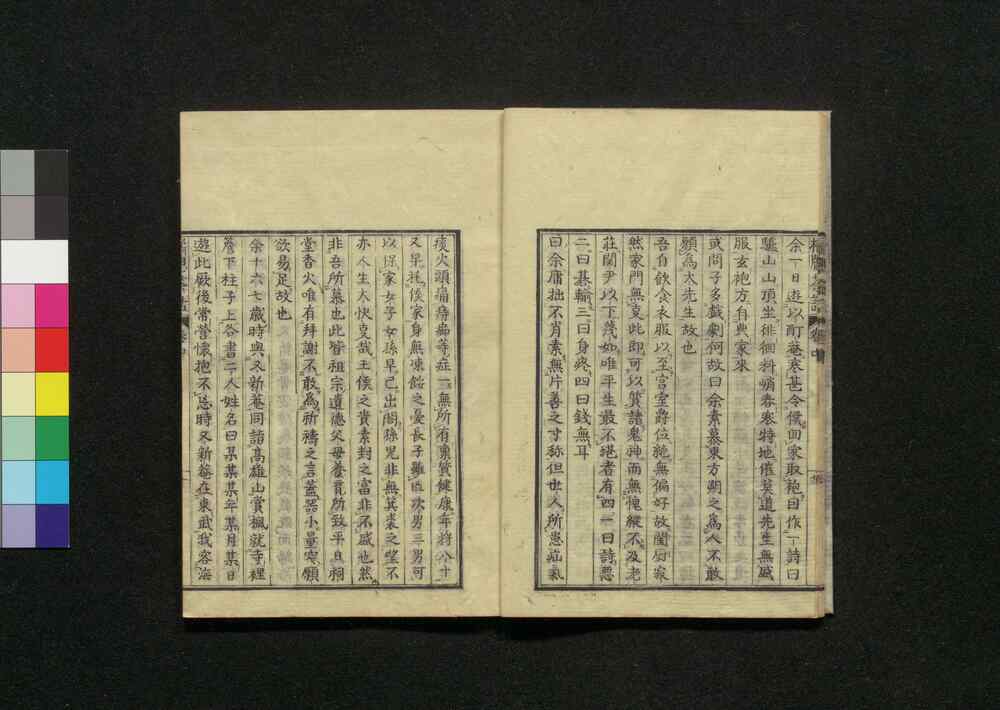 余一日遊以酊菴寒甚令僕回家取袍因作一詩曰
驢山山頂坐徘徊料峭春寒特地催莫道先生無盛
服玄袍方自典家來
或問子多戯劇何故曰余素慕東方朔之爲人不敢
願爲太先生故也
吾自飲食衣服以至宮室爵位絶無偏好故閨房寂
然家門無憂此即可以質諸鬼神而無愧縱不及老
莊關尹以下幾如唯平生最不堪者有四一曰詩惡
二曰碁輸三曰身疼四曰錢無耳
曰余庸拙不肖素無片善之寸称但世人所患疝氣
痰火頭痛痔痛等症一無所有稟質健康年將八十
又早托後家身無凍餒之憂長子雖亡次男三男可
以保家女子女孫早已出閣孫児非無箕裘之望不
亦人生大快哉王侯之貴素封之富非不盛也然
非吾所慕也此皆祖宗遺德父母養育所致平旦祠
堂香火唯有拜謝不敢爲祈禱之言蓋器小量窄願
欲易足故也
余十六七歳時與又新菴同詣高雄山賞楓就寺裡
簷下柱子上各書二人姓名曰某某某年某月某日
遊此厥後常營懷抱不忘時又新菴在東武我客海